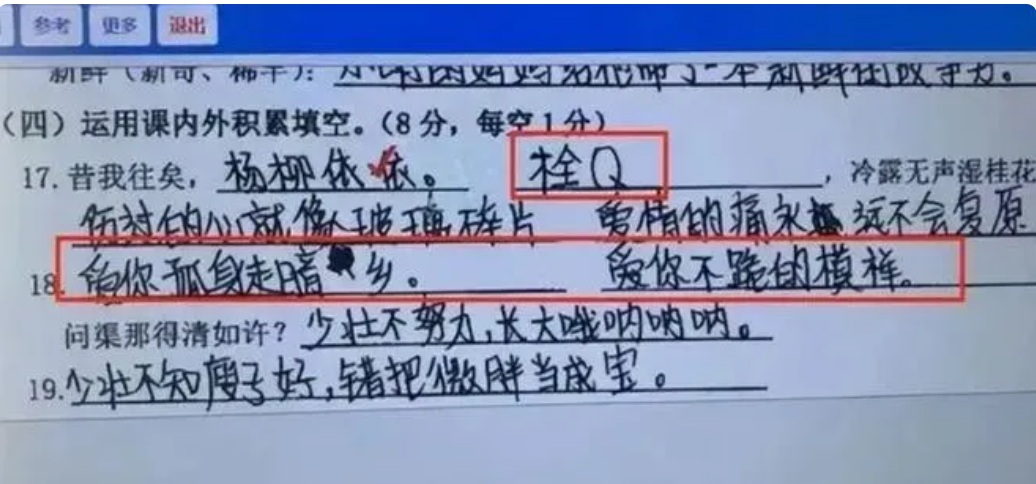 参考 更多 退出
新鲜（新奇、稀罕）：
（四）运用课内外积累填空。（8分，每空1分）
17. 昔我往矣，杨柳依依。 栓Q，冷露无声湿桂花
伤过的心就像玻璃碎片 爱情的痛永远不会复原
18. 爱你孤身走暗乡。 爱你不跪的模样。
问渠那得清如许？少壮不努力，长大哦呐呐呐。
19. 少壮不知瘦子好，错把微胖当成宝。